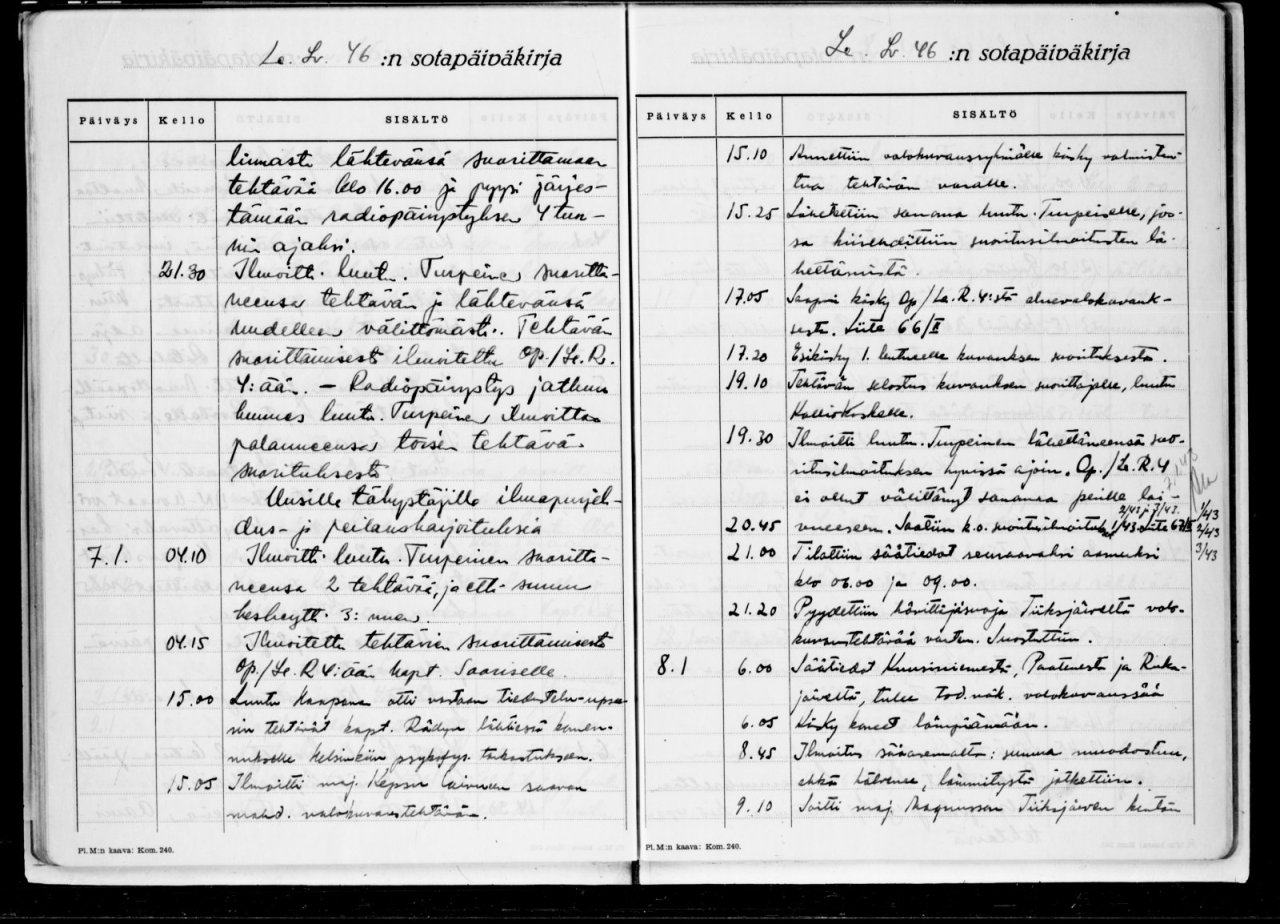 Le. Lv. 46 :n sotapäiväkirja
Päiväys Kello SISÄLTÖ
linnasta lähtevänsä suorittamaan
tehtävää klo 16.00 ja pyysi järjes-
tämään radiopäivystyksen 4 tun-
nin ajaksi.
21.30 Ilmoitti luutn. Turpeinen suoritta-
neensa tehtävän ja lähtevänsä
uudelleen välittömästi. Tehtävän
suorittamisesta ilmoitettu Op./Le.R.
4:ään. — Radiopäivystys jatkuu
kunnes luutn. Turpeinen ilmoittaa
palanneensa toisen tehtävän
suorituksesta.
Uusille tähystäjille ilmapurjeh-
dus- ja peilausharjoituksia
7.1. 04.10 Ilmoitti luutn. Turpeinen suoritta-
neensa 2 tehtävää, ja että sumu
keskeytti 3:nnen.
04.15 Ilmoitettu tehtävien suorittamisesta
Op./Le.R4:ään kapt. Saariselle.
15.00 Luutn. otti vastaan tiedustelu-upsee-
rin tehtävät kapt. Rädyn lähtiessä komen-
nukselle Helsinkiin psykofys. tarkastukseen.
15.05 Ilmoitti maj. Kepsu laivueen saavan
mahd. valokuvaustehtävän.
Pl. M:n kaava: Kom. 240.
Le. Lv. 46 :n sotapäiväkirja
Päiväys Kello SISÄLTÖ
15.10 Annettiin valokuvausryhmälle käsky valmistau-
tua tehtävän varalle.
15.25 Lähetettiin sanoma luutn. Turpeiselle, jos-
sa kiirehdittiin suoritusilmoitusten lä-
hettämistä.
17.05 Saapui käsky Op/Le.R.4:stä aluevalokuvauk-
sesta. Liite 66/II
17.20 Esikäsky 1. lentueelle kuvauksen suorituksesta.
19.10 Tehtävän selostus kuvauksen suorittajalle, luutn.
Kalliokoskelle.
19.30 Ilmoitti luutn. Turpeinen lähettäneensä suo-
ritusilmoituksen hyvissä ajoin. Op./Le.R.4
ei ollut välittänyt sanomaa perille lai-
2/43 ja 3/43. 1/43
20.45 vueeseen. Saatiin k.o. suoritusilmoitukset 1/43 Liite 67/II 2/43
21.00 Tilattiin säätiedot seuraavaksi aamuksi 3/43
klo 06.00 ja 09.00.
21.20 Pyydettiin hävittäjäsuoja Tiiksjärveltä valo-
kuvaustehtävää varten. Suostuttiin.
8.1 6.00 Säätiedot Kuusiniemestä, Paatenesta ja Ruka-
järveltä, tulee tod.näk. valokuvaussää
6.05 Käsky koneet lämpiämään.
8.45 Ilmoitus sääasemalta: sumua muodostuu,
ehkä hälvenee, lämmitystä jatkettiin.
9.10 Soitti maj. Magnusson Tiiksjärven kentän
Pl. M:n kaava: Kom. 240.